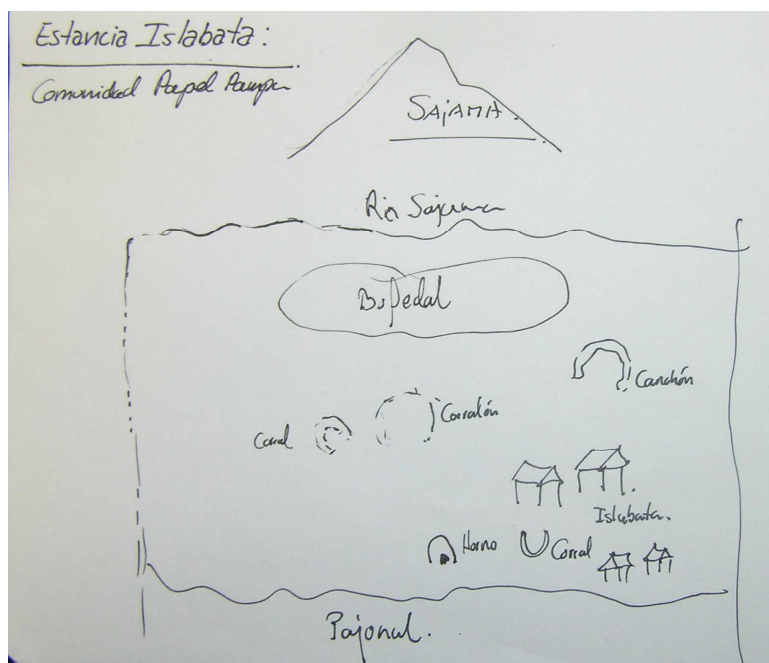 Estancia Islabata:
Comunidad Papel Pampa
SAJAMA.
Rio Sajama
Bofedal
Canchón
Corralón
Corral
Islabata.
Horno
Corral
Pajonal.